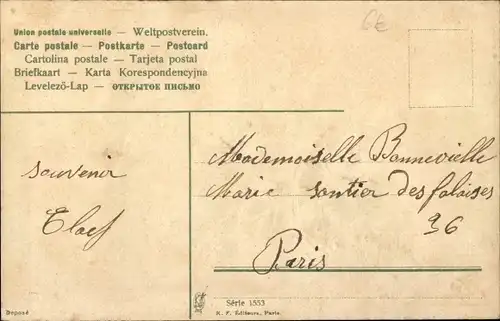 6€
Union postale universelle — Weltpostverein.
Carte postale — Postkarte — Postcard
Cartolina postale — Tarjeta postal
Briefkaart — Karta Korespondencyjna
Levelező-Lap — ОТКРЫТОЕ ПИСЬМО
souvenir
Mademoiselle Bonnevielle
Marie sentier des falaises
96
Paris
Série 1553
Deposé
R. F. Editeurs, Paris